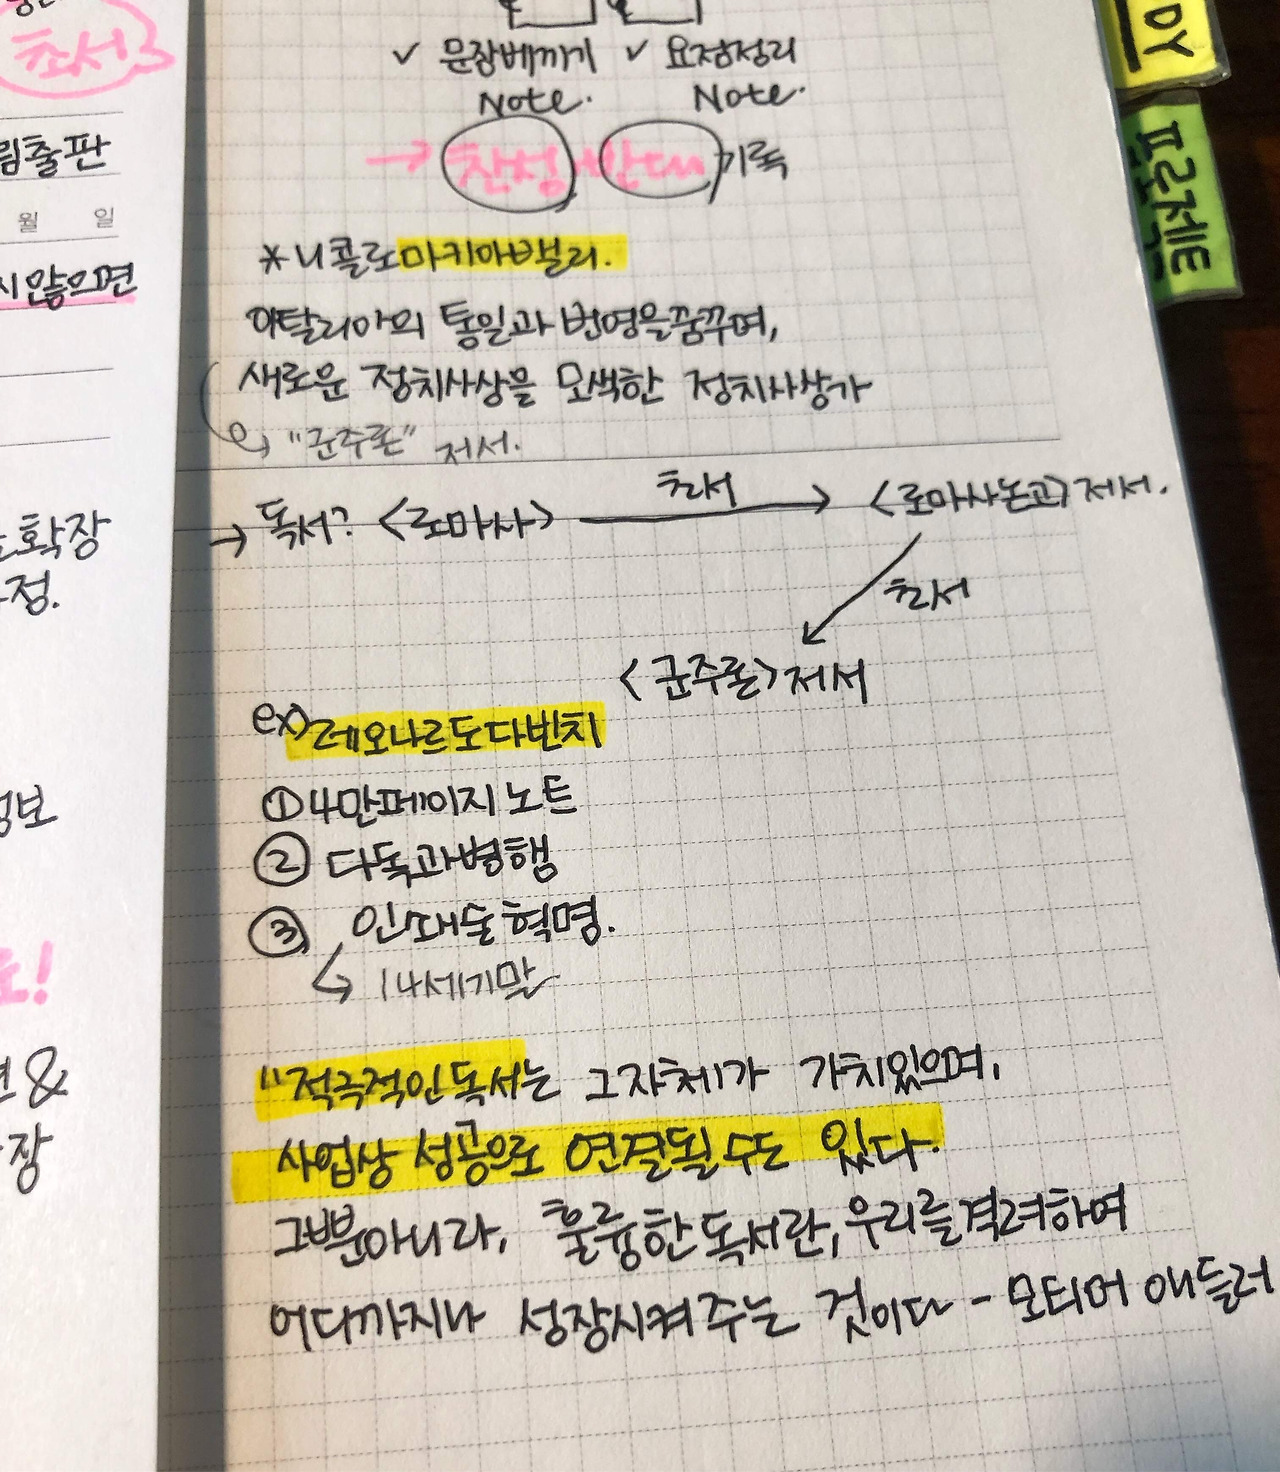 초서
림출판
월 일
시 않으면
확장
정.
정보
&
장
✓ 문장베끼기 ✓ 요점정리
Note. Note.
→ 찬성 반대 기록
* 니콜로 마키아벨리.
이탈리아의 통일과 번영을 꿈꾸며,
새로운 정치사상을 모색한 정치사상가
"군주론" 저서.
→ 독서? <로마사> 초서 → <로마사논고> 저서.
초서
<군주론> 저서
ex) 레오나르도다빈치
① 4만페이지 노트
② 다독과병행
③ 인쇄술 혁명.
↳ 14세기말
"적극적인 독서는 그자체가 가치있으며,
사업상 성공으로 연결될 수도 있다.
그뿐아니라, 훌륭한 독서란, 우리를 격려하여
어디까지나 성장시켜 주는 것이다 - 모티머 애들러
DY
프로젝트